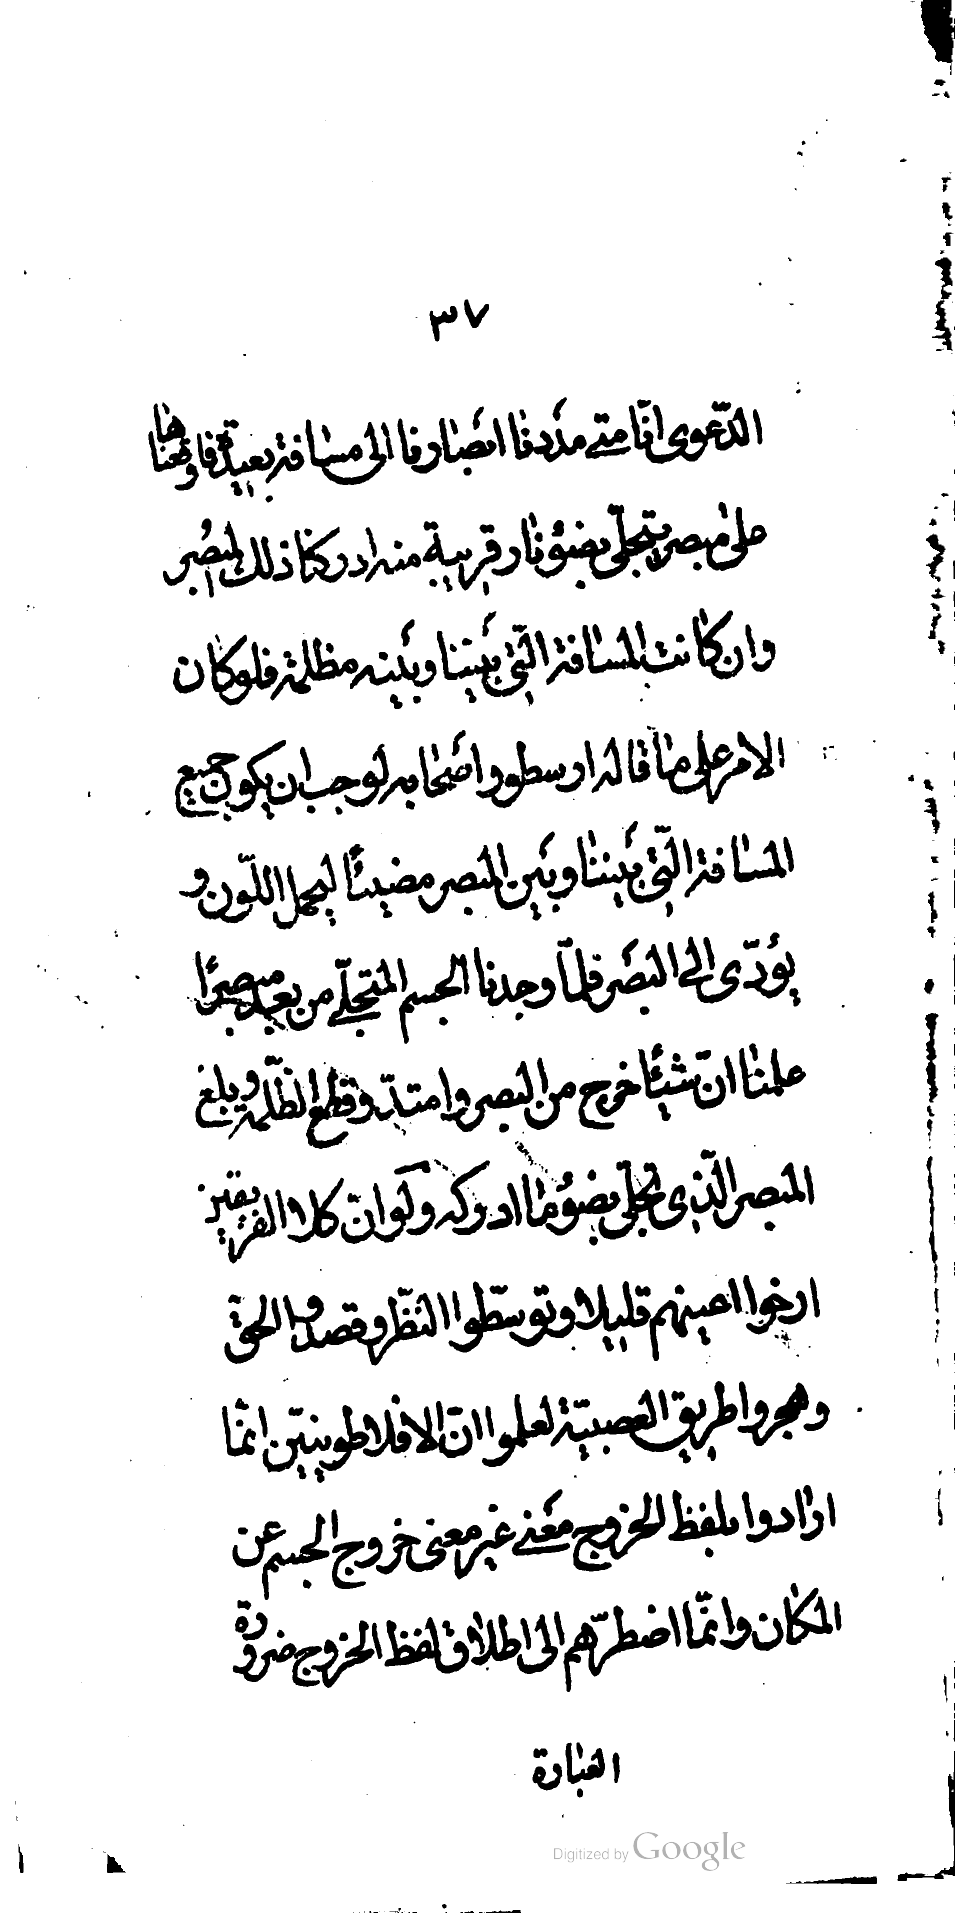 ٣٧
الدّعوى انّا متى مددنا ابصارنا الى مسافة بعيدة فاوقعناها
على مبصر يتجلّى بضوء نار قريبة منه ادركنا ذلك المبصر
وان كانت المسافة الّتى بيننا وبينه مظلمة فلو كان
الامر على ما قاله ارسطو واصحابه لوجب ان يكون جميع
المسافة الّتى بيننا وبين المبصر مضيئا ليحمل اللّون و
يؤدّى الى البصر فلمّا وجدنا الجسم المتجلّى من بعيد مبصرًا
علمنا انّ شيئًا خرج من البصر وامتدّ وقطع الظّلمة وبلغ
المبصر الّذى تجلّى بضوء ما ادركه ولو انّ كلا الفريقين
ارخوا اعينهم قليلا وتوسّطوا النّظر وقصدوا الحق
وهجروا طريق العصبيّة لعلموا انّ الافلاطونيين انّما
ارادوا بلفظ الخروج معنى غير معنى خروج الجسم عن
المكان وانّما اضطرّهم الى اطلاق لفظ الخروج ضرورة
العبارة
Digitized by Google